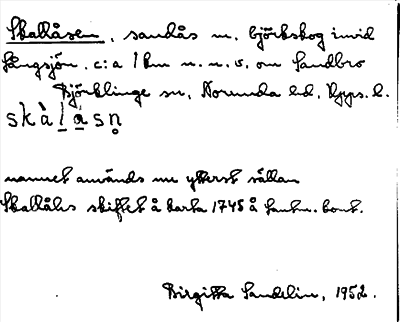 Skallåsen, sandås m. björkskog invid
Långsjön, c:a 1 km n.n.v. om Sandbro
Björklinge sn, Norunda hd, Upps. l.
skàlåsn̥
namnet används nu ytterst sällan
Skallåhs skiftet å karta 1745 å lantm. kont.
Birgitta Sandelin, 1952.